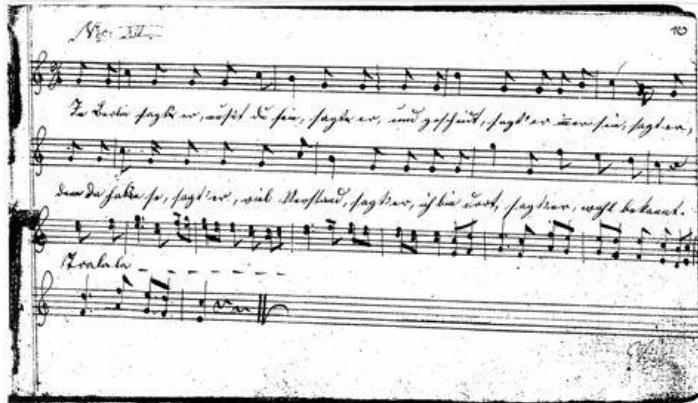 No: XII.
10
In Berlin sagte er, mußt du sein, sagte er, und gescheut, sagt' er immer sein, sagt er,
denn da habe se, sagt' er, viel Verstand, sagt' er, ich bin dort, sagt' er, wohl bekannt.
Tralala